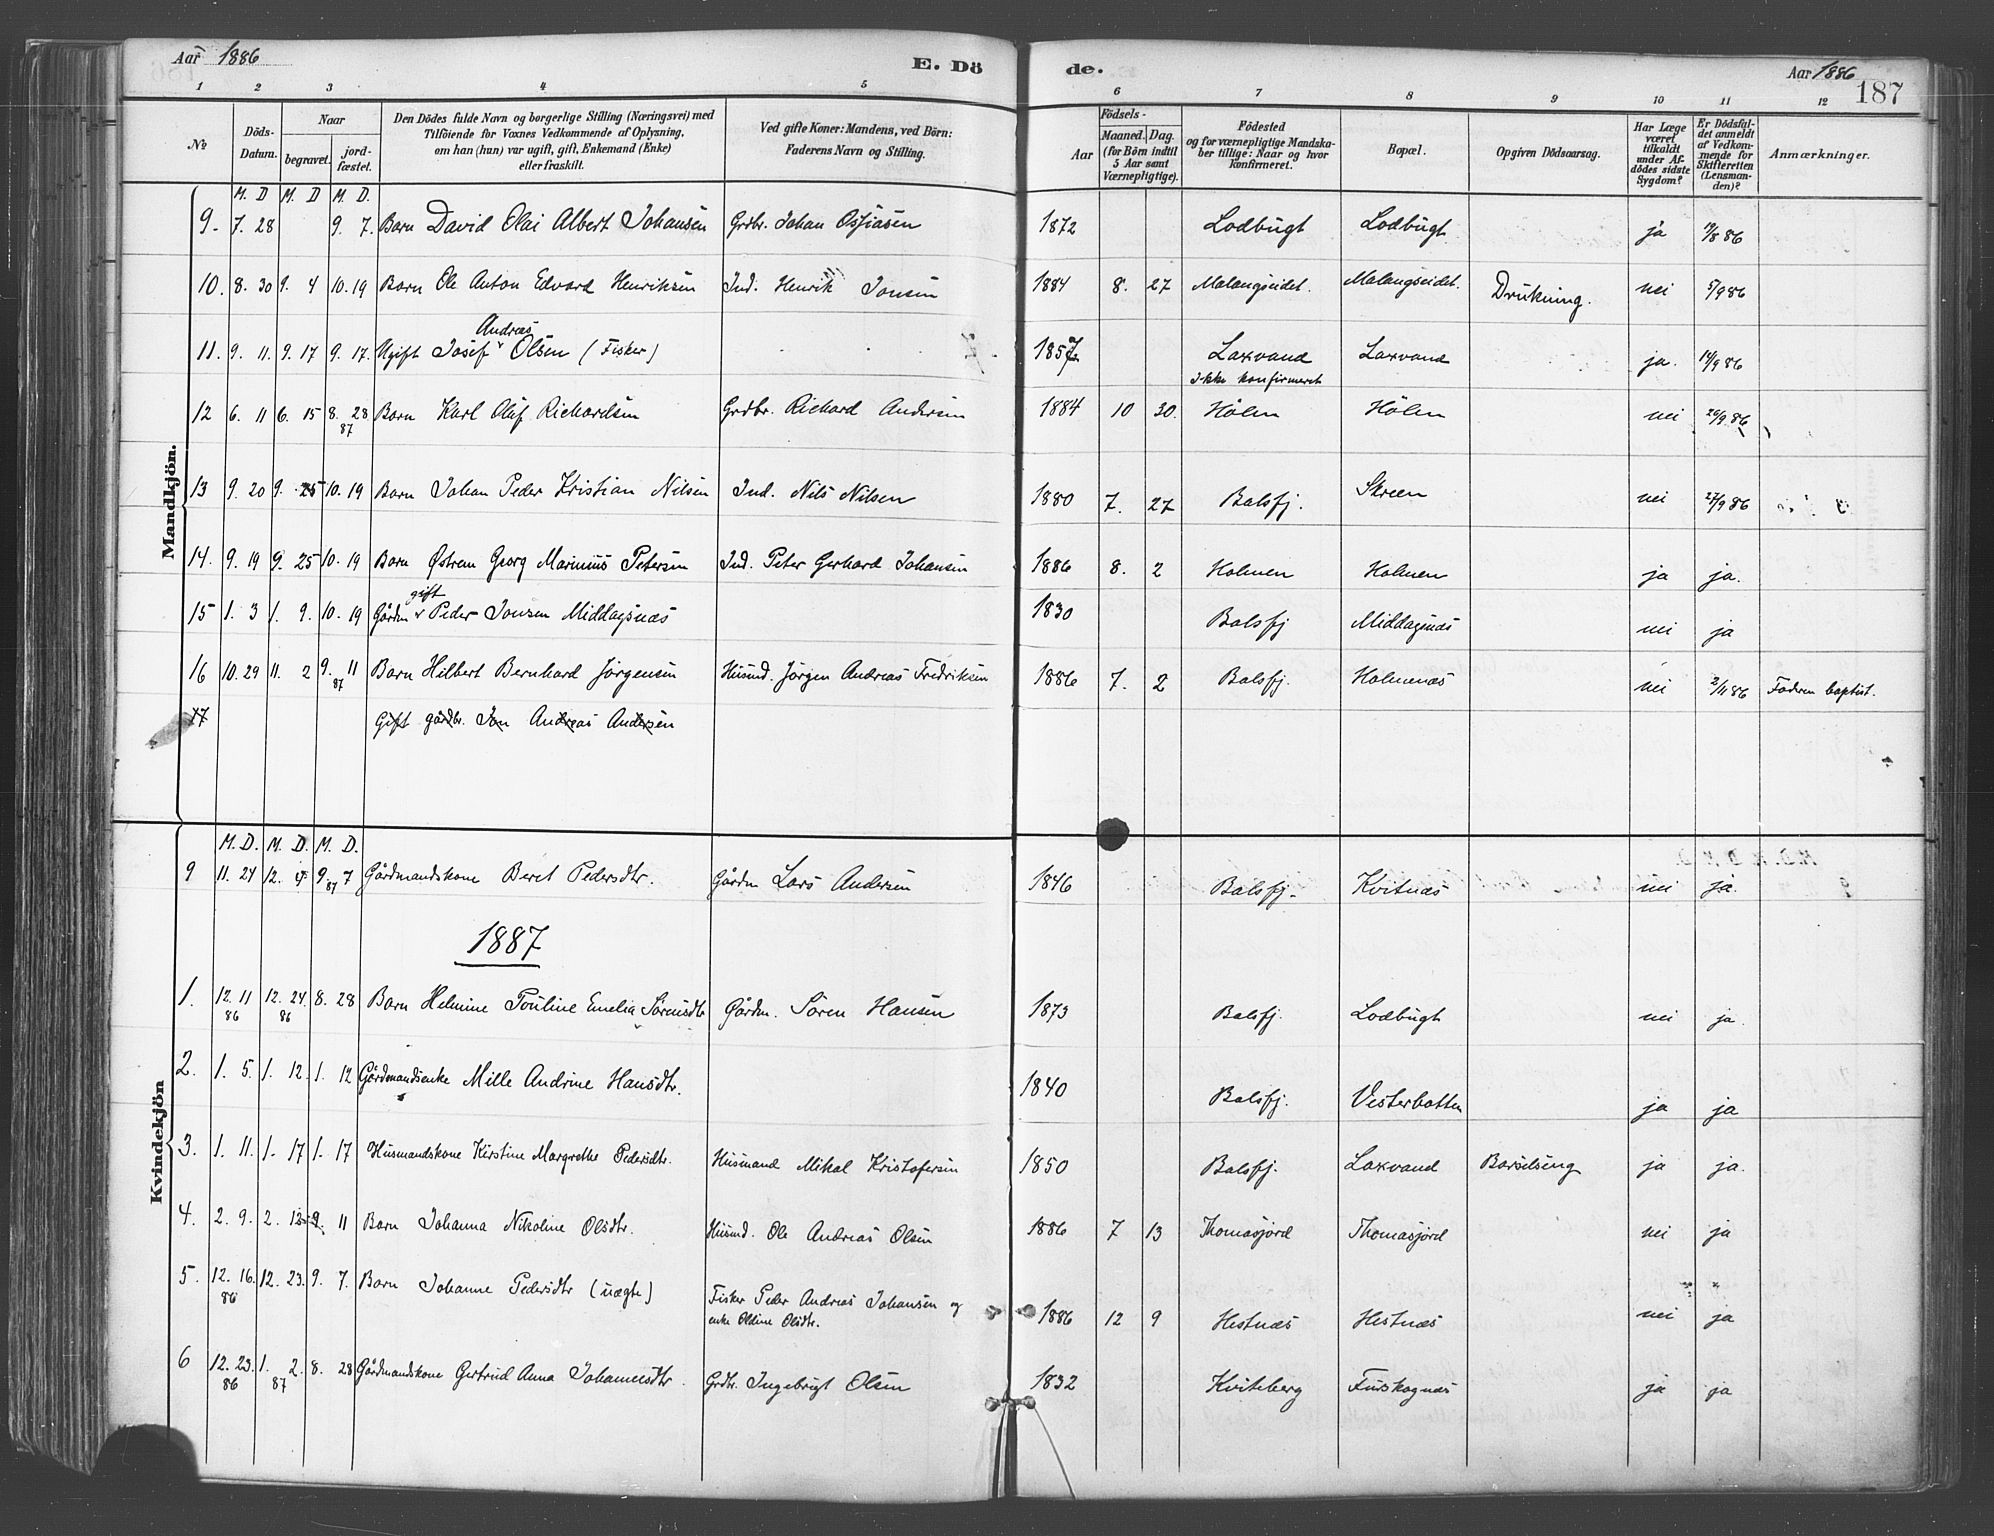 Aar 1886 E. Dö de. Aar 1886 187
1 2 3 4 5 6 7 8 9 10 11 12
№
Döds-Datum.
Naar
begravet.
jord-fæstet.
Den Dödes fulde Navn og borgerlige Stilling (Næringsvei) med
Tilföiende for Voxnes Vedkommende af Oplysning,
om han (hun) var ugift, gift, Enkemand (Enke)
eller fraskilt.
Ved gifte Koner: Mandens, ved Börn:
Faderens Navn og Stilling.
Födsels-
Aar
Maaned. Dag.
(for Börn indtil
5 Aar samt
Værnepligtige).
Födested
og for værnepligtige Mandska-
ber tillige: Naar og hvor
Konfirmeret.
Bopæl.
Opgiven Dödsaarsag.
Har Læge
været
tilkaldt
under Af-
dödes sidste
Sygdom?
Er Dödsfal-
det anmeldt
af Vedkom-
mende for
Skifteretten
(Lensman-
den)?
Anmærkninger.
Mandkjön.
M. D M. D M. D.
9. 7. 28 9. 7. Barn David Olai Albert Johansen Grdbr. Johan Osfiasen 1872 Lodbugt Lodbugt ja 19/8 86
10. 8. 30 9. 4 10. 19 Barn Ole Anton Edvard Henriksen Ind. Henrik Jonsen 1884 8. 27 Malangseidet. Malangseidet. Drukning. nei 5/9 86
Andreas
11. 9. 11. 9. 17 9. 17. Ugift Josef Olsen (Fisker) 1857 Laxvand Laxvand ja. 14/9 86
ikke konfirmeret
12 6. 11 6. 15 8. 28 Barn Karl Oluf Richardsen Grdbr. Richard Andersen 1884 10 30. Hölen Hölen nei 26/9 86
87
13 9. 20 9. 25 10. 19 Barn Johan Peder Kristian Nilsen Ind. Nils Nilsen 1880 7. 27 Balsfj. Skreen nei 27/9 86
14. 9. 19 9. 25 10. 19 Barn Østrem Georg Marinius Petersen Ind. Peter Gerhard Johansen 1886 8. 2 Holmen Holmen ja ja.
gift
15 1. 3 1. 9. 10. 19 Gårdm Peder Jonsen Middagsnæs 1830 Balsfj Middagsnæs nei ja
16 10. 29 11. 2 9. 11 Barn Hilbert Bernhard Jørgensen Husmd. Jørgen Andreas Fredriksen 1886 7. 2 Balsfj. Holmenæs nei 2/11 86 Faderen baptist.
87
17 Gift gårdbr. Jon Andreas Andersen
Kvindekjön
M. D. M. D. M. D.
9 11. 24 12. 4 9 7 Gårdmandskone Beret Pedersdtr. Gårdm Lars Andersen 1846 Balsfj. Kvitnæs nei ja.
87
1887
1. 12. 11 12. 24. 8. 28 Barn Helmine Pouline Emelia Sörensdtr Gårdm. Sören Hansen 1873 Balsfj. Lodbugt nei ja.
86 86
2. 1. 5. 1. 12. 1. 12 Gårdmandsenke Mille Andrine Hansdtr. 1840 Balsfj. Vesterbotten ja ja
3. 1. 11. 1. 17 1. 17 Husmandskone Kirstine Margrethe Pedersdtr. Husmand Mikal Kristofersen 1850 Balsfj. Laxvand Barselseng ja ja.
4. 2. 9. 2. 13 9. 11 Barn Johanna Nikoline Olsdtr. Husmd. Ole Andreas Olsen 1886 7 13 Thomasjord Thomasjord nei ja
5. 12. 16. 12. 23. 9. 7. Barn Johanne Pedersdtr (uægte) Fisker Peder Andreas Johansen og
86 enke Oldine Olsdtr. 1886 12 9 Hestnæs Hestnæs nei ja
6 12. 23. 1. 2. 8. 28 Gårdmandskone Gertrud Anna Johannesdtr. Grdbr. Ingebrigt Olsen 1832 Kviteberg Fuskognæs ja ja
86 87